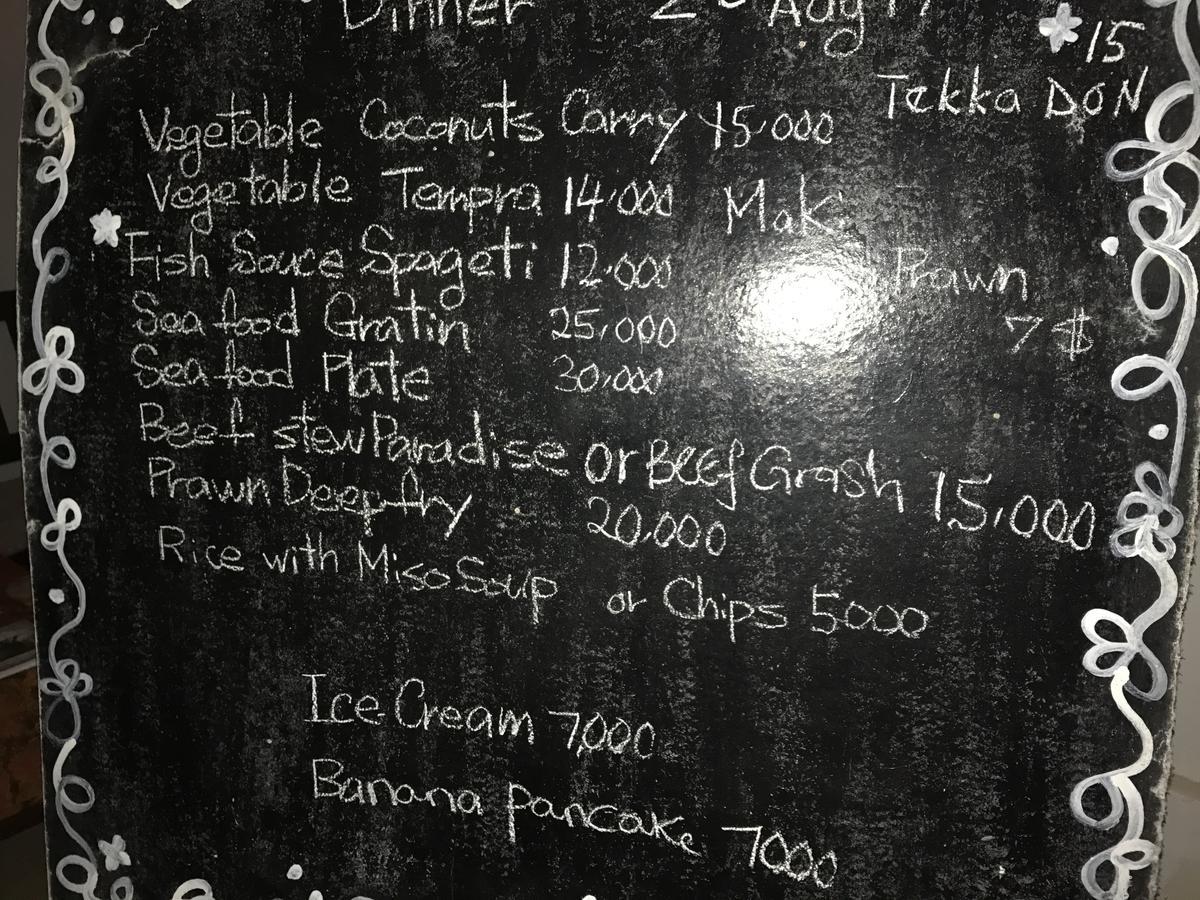 Dinner 2 Aug 17
15
Tekka DON
Vegetable Coconuts Carry 15,000
Vegetable Tempra 14,000
Mak
Fish Sauce Spageti 12,000
Prawn
7 $
Sea food Gratin 25,000
Sea food Plate 30,000
Beef stew Paradise or Beef Grash 15,000
Prawn Deep fry 20,000
Rice with Miso Soup or Chips 5000
Ice Cream 7,000
Banana pancake 7000